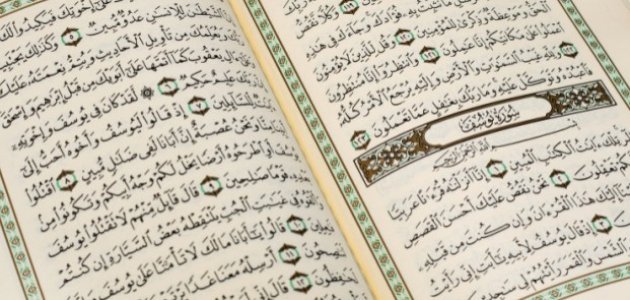 وَكُلًّا نَّقُصُّ
نُثَبِّتُ بِهِۦ فُؤَادَكَ وَجَآءَكَ فِي هَٰذِهِ
ٱلۡحَقُّ وَمَوۡعِظَةٞ وَذِكۡرَىٰ لِلۡمُؤۡمِنِينَ ١٢٠ وَقُل لِّلَّذِينَ لَا يُؤۡمِنُونَ
ٱعۡمَلُواْ عَلَىٰ مَكَانَتِكُمۡ إِنَّا عَٰمِلُونَ ١٢١ وَٱنتَظِرُوٓاْ إِنَّا مُنتَظِرُونَ
١٢٢ وَلِلَّهِ غَيۡبُ ٱلسَّمَٰوَٰتِ وَٱلۡأَرۡضِ وَإِلَيۡهِ يُرۡجَعُ ٱلۡأَمۡرُ كُلُّهُۥ
فَٱعۡبُدۡهُ وَتَوَكَّلۡ عَلَيۡهِۚ وَمَا رَبُّكَ بِغَٰفِلٍ عَمَّا تَعۡمَلُونَ ١٢٣
سُورَةُ يُوسُفَ
بِسۡمِ ٱللَّهِ ٱلرَّحۡمَٰنِ ٱلرَّحِيمِ
تِلۡكَ ءَايَٰتُ ٱلۡكِتَٰبِ ٱلۡمُبِينِ ١ إِنَّآ أَنزَلۡنَٰهُ قُرۡءَٰنًا عَرَبِيّٗا
تَعۡقِلُونَ ٢ نَحۡنُ نَقُصُّ عَلَيۡكَ أَحۡسَنَ ٱلۡقَصَصِ
إِلَيۡكَ هَٰذَا ٱلۡقُرۡءَانَ وَإِن كُنتَ مِن قَبۡلِهِۦ
إِذۡ قَالَ يُوسُفُ لِأَبِيهِ يَٰٓأَبَتِ إِنِّي رَأَيۡتُ
وَٱلشَّمۡسَ وَٱلۡقَمَرَ رَأَيۡتُهُمۡ لِي سَٰجِدِينَ
فَيَكِيدُواْ لَكَ
ٱلشَّيۡطَٰنَ لِلۡإِنسَٰنِ عَدُوّٞ مُّبِينٞ ٥ وَكَذَٰلِكَ يَجۡتَبِيكَ
وَيُعَلِّمُكَ مِن تَأۡوِيلِ ٱلۡأَحَادِيثِ وَيُتِمُّ نِعۡمَتَهُۥ عَلَيۡكَ
ءَالِ يَعۡقُوبَ كَمَآ أَتَمَّهَا عَلَىٰٓ أَبَوَيۡكَ مِن قَبۡلُ إِبۡرَٰهِيمَ وَإِسۡحَٰقَۚ
رَبَّكَ عَلِيمٌ حَكِيمٞ ٦ ۞ لَّقَدۡ كَانَ فِي يُوسُفَ وَإِخۡوَتِهِۦٓ
لِّلسَّآئِلِينَ ٧ إِذۡ قَالُواْ لَيُوسُفُ وَأَخُوهُ أَحَبُّ إِلَىٰٓ
أَبِينَا مِنَّا وَنَحۡنُ عُصۡبَةٌ إِنَّ أَبَانَا لَفِي ضَلَٰلٖ مُّبِينٍ ٨ ٱقۡتُلُواْ
يُوسُفَ أَوِ ٱطۡرَحُوهُ أَرۡضٗا يَخۡلُ لَكُمۡ وَجۡهُ أَبِيكُمۡ وَتَكُونُواْ مِنۢ
بَعۡدِهِۦ قَوۡمٗا صَٰلِحِينَ ٩ قَالَ قَآئِلٞ مِّنۡهُمۡ لَا تَقۡتُلُواْ يُوسُفَ
وَأَلۡقُوهُ فِي غَيَٰبَتِ ٱلۡجُبِّ يَلۡتَقِطۡهُ بَعۡضُ ٱلسَّيَّارَةِ إِن كُنتُمۡ
فَٰعِلِينَ ١٠ قَالُواْ يَٰٓأَبَانَا مَا لَكَ لَا تَأۡمَ۬نَّا عَلَىٰ يُوسُفَ
لَنَٰصِحُونَ ١١ أَرۡسِلۡهُ مَعَنَا غَدٗا
لَحَٰفِظُونَ ١٢ قَالَ إِنِّي